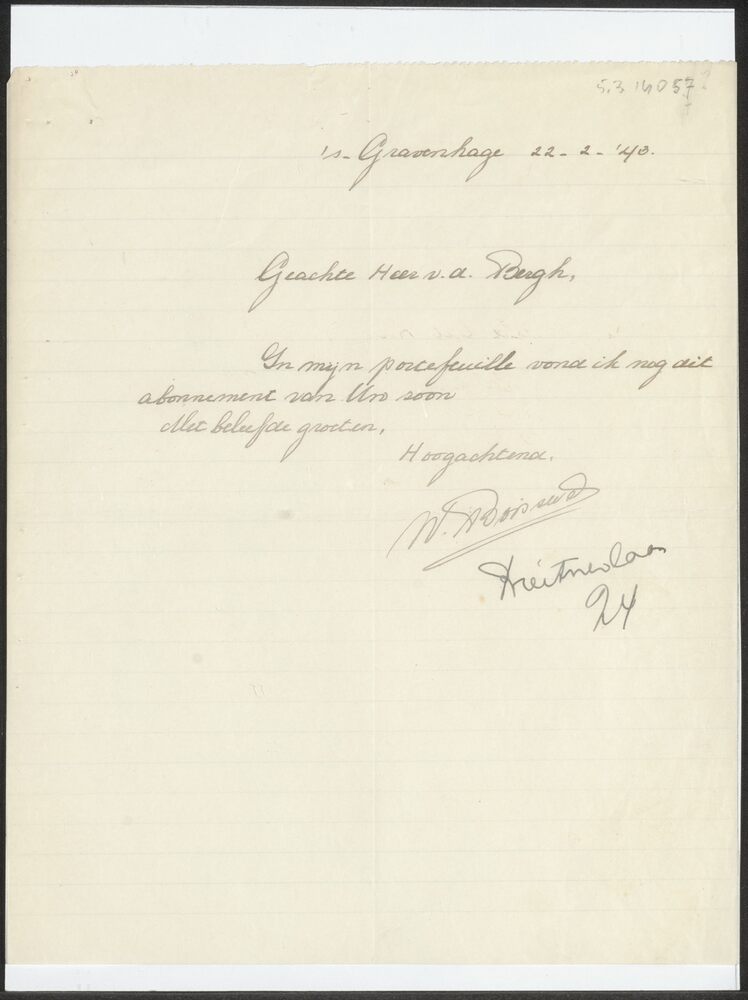 5.3 14057
's-Gravenhage 22-2-'43.
Geachte Heer v.d. Bergh,
In mijn portefeuille vond ik nog dit
abonnement van Uw zoon
Met beleefde groeten,
Hoogachtend.
W.
24